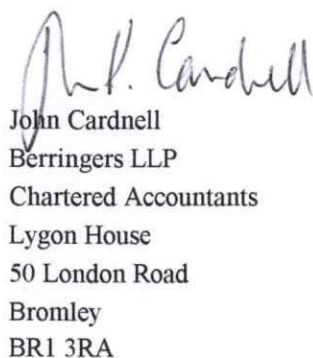 John P. Cardnell
John Cardnell
Berringers LLP
Chartered Accountants
Lygon House
50 London Road
Bromley
BR1 3RA